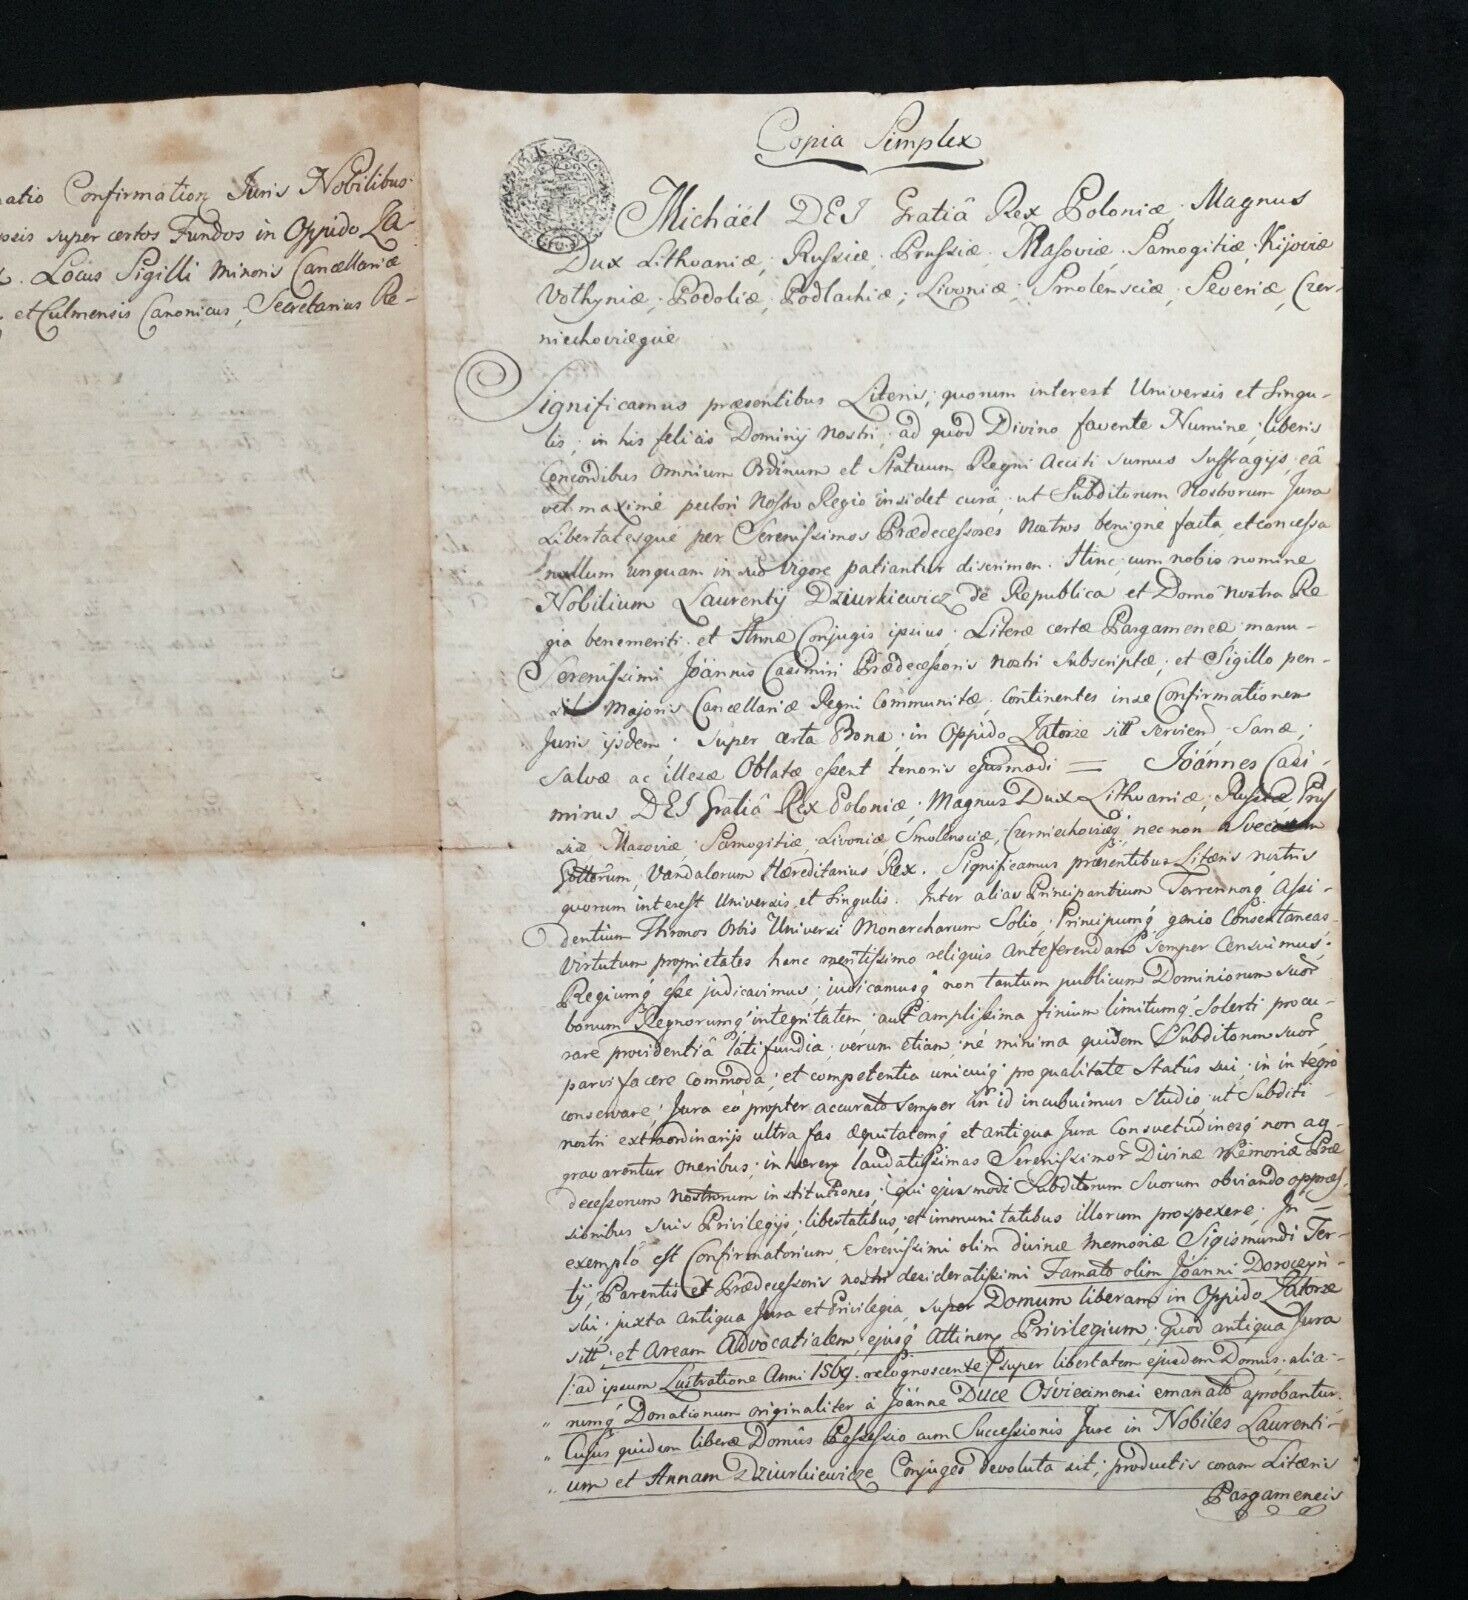 atio Confirmation Juris Nobilibus
super certos Fundos in Oppido Za-
Locus Sigilli Minoris Cancellariæ
et Culmensis Canonicus, Secretarius Re-
Copia Simplex
Michäel DEI Gratiâ Rex Poloniæ, Magnus
Dux Lithvaniæ, Russiæ, Prussiæ, Masoviæ, Samogitiæ, Kijoviæ
Volhyniæ, Podoliæ, Podlachiæ, Livoniæ, Smolensciæ, Severiæ, Czer-
niechoviæque
Significamus præsentibus Literis, quorum interest Universis et Singu-
lis, in his felicis Dominij Nostri, ad quod Divino favente Numine, liberis
Concordibus Omnium Ordinum et Statuum Regni acciti sumus suffragijs, eâ
vel maximé pectori Nostro Regio insidet curâ, ut Subditorum Nostrorum Jura
Libertatesqué per Serenissimos Prædecessores Nostros benigné facta, et concessa
nullum unquam in suo vigore patiantur discrimen. Hinc, cum nobis nomine
Nobilium Laurentij Dziurkiewicz de Republica et Domo Nostra Re
gia benemeriti et Annæ Conjugis ipsius, Literæ certæ Pargameneæ, manu
Serenissimi Jöannis Casimiri Prædecessoris Nostri subscriptæ, et Sigillo pen-
sili Majoris Cancellariæ Regni Communitæ, continentes in se Confirmationem
Juris ijsdem super certa Bona, in Oppido Zatorze sitt servien, Sanæ,
Salvæ ac illesæ Oblatæ essent tenoris ejusmodi = Jöánnes Casi-
mirus DEI Gratiâ Rex Poloniæ, Magnus Dux Lithvaniæ, Russiæ Prus
siæ Masoviæ, Samogitiæ, Livoniæ, Smolensciæ, Czerniechoviæq, nec non Svecorum
Gottorum, Vandalorum Hæreditarius Rex. Significamus præsentibus Literis nostris
quorum interest Universis et Singulis. Inter alias Principantium Terrennorq, Assi-
dentium Thronos Orbis Universi Monarcharum Solio, Principumq genio Consentaneas
Virtutum proprietates hanc meritissimo reliquis anteferendam semper Censuimus,
Regiumq esse judicavimus, judicamusq non tantum publicum Dominiorum suor
bonum Regnorumq integritatem aut amplissima finium limitumq Solerti procu-
rare providentiâ latifundia, verum etiam, né minima quidem Subditorum suor
parvi facere Commoda, et competentia unicuiq pro qualitate Statûs sui, in integro
conservare, Jura eó propter accurato semper in id incubuimus studio, ut Subditi
nostri extraordinarijs ultra fas æquitatemq et antiqua Jura Consvetudinesq non ag-
gravarentur Oneribus, inhæren laudatissimas Serenissimor Divinæ Memoriæ Præ
decessorum nostrorum institutiones, qui ejusmodi Subditorum Suorum obviando oppres-
sionibus suis Privilegijs, libertatibus, et immunitatibus illorum prospexere. In
exempló est Confirmatorium Serenissimi olim divinæ memoriæ Sigismundi Ter-
tij, Parentis et Prædecessoris nostri desideratissimi Famato olim Jöánni Doroczyn-
ski, juxta antiqua Jura et Privilegia, super Domum liberam in Oppido Zatorze
sitt, et Aream Advocatialem, ejusq Attinen Privilegium, Quod antiqua Jura
/:ad ipsum Lustratione Anni 1569. relognoscente / super libertatem ejusdem Domus, alia-
" rumq Donationum originaliter á Jöánne Duce Oswiecimensi emanato aprobantur.
" Cujus quidem liberæ Domûs Possessio cum Successionis Jure in Nobiles Laurenti-
" um et Annam Dziurkiewicze Conjuges devoluta sit, productis coram Litæris
Pargameneis